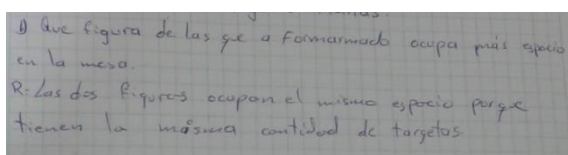 1) Que figura de las que a formarmado ocupa más espacio
en la mesa.
R: Las dos figuras ocupan el mismo espacio porqe
tienen la másma cantidad de targetas